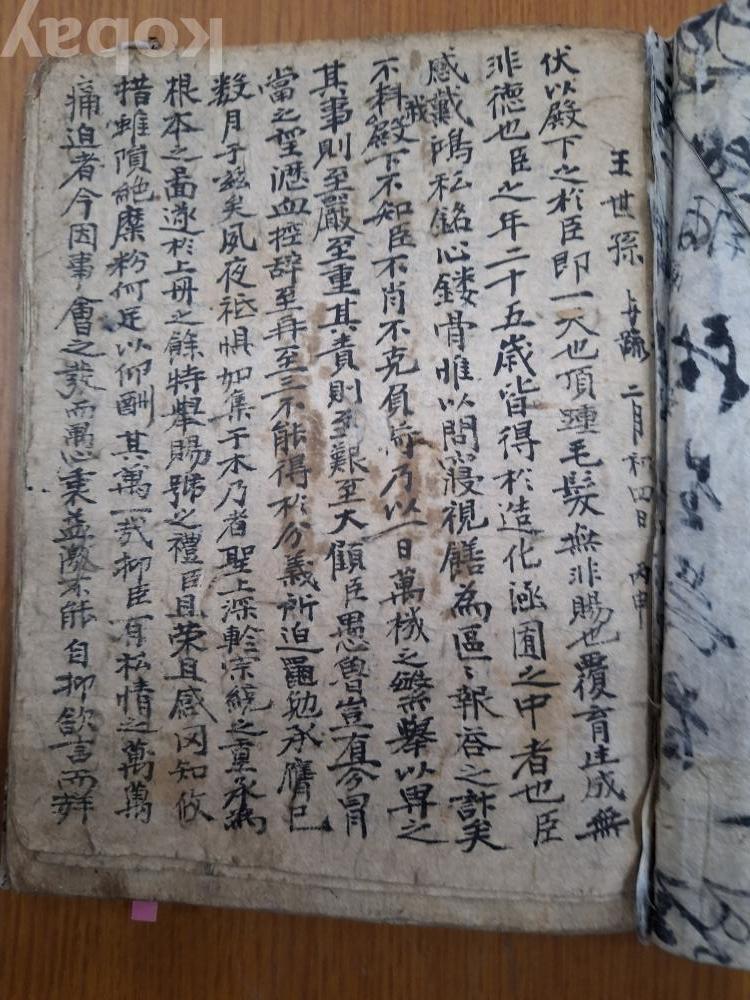 王世孫 上疏 二月初四日 丙申
伏以殿下之於臣即一天也頂踵毛髮無非賜也覆育生成無
非德也臣之年二十五歲皆得於造化涵囿之中者也臣
感戴鴻私銘心鏤骨惟以問寢視饍為區〻報答之計矣
不料殿下不知臣不肖不克負荷乃以一日萬機之繁舉以畀之
我
其事則至嚴至重其責則至艱至大顧臣愚魯豈有今冒
當之望瀝血控辞至再至三不能得於分義所迫黽勉承膺已
数月于玆矣夙夜祗惧如集于木乃者聖上深軫宗統之重承
根本之啚遂於上冊之餘特舉賜號之禮臣且荣且感罔知攸
措雖隕絶糜粉何足以仰酬其萬一哉抑臣有私情之萬萬
痛迫者今因事會之發而愚衷益激不能自抑欲言而
kobay